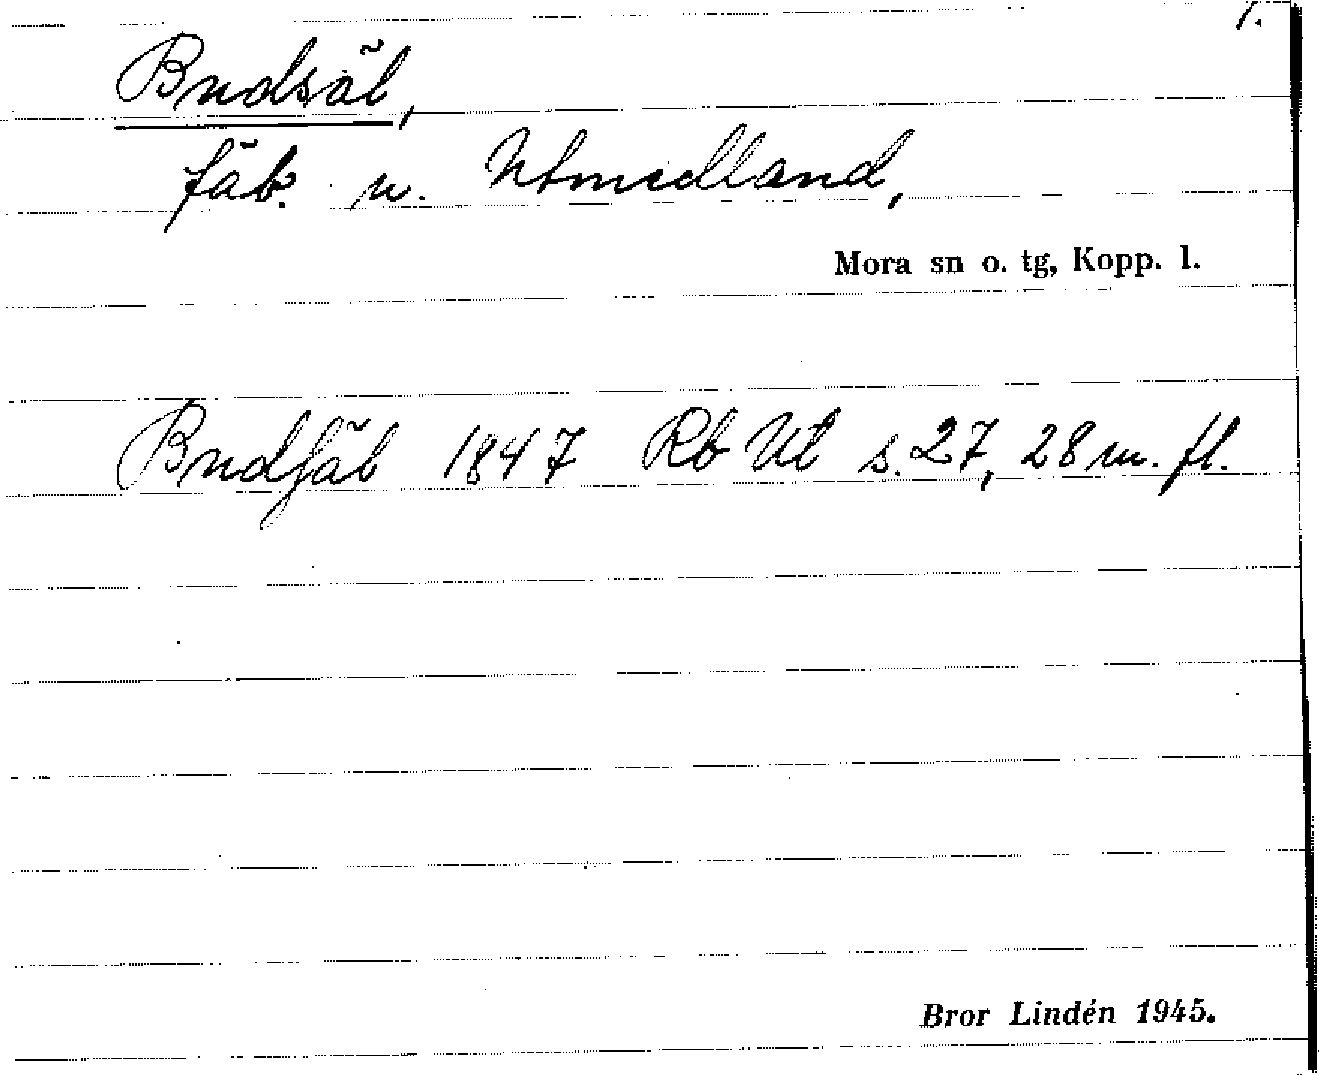 1.
Budsäl,
fäb. u. Utmedland,
Mora sn o. tg, Kopp. l.
Budſäl 1847 Rb Ut s. 27, 28 m. fl.
Bror Lindén 1945.